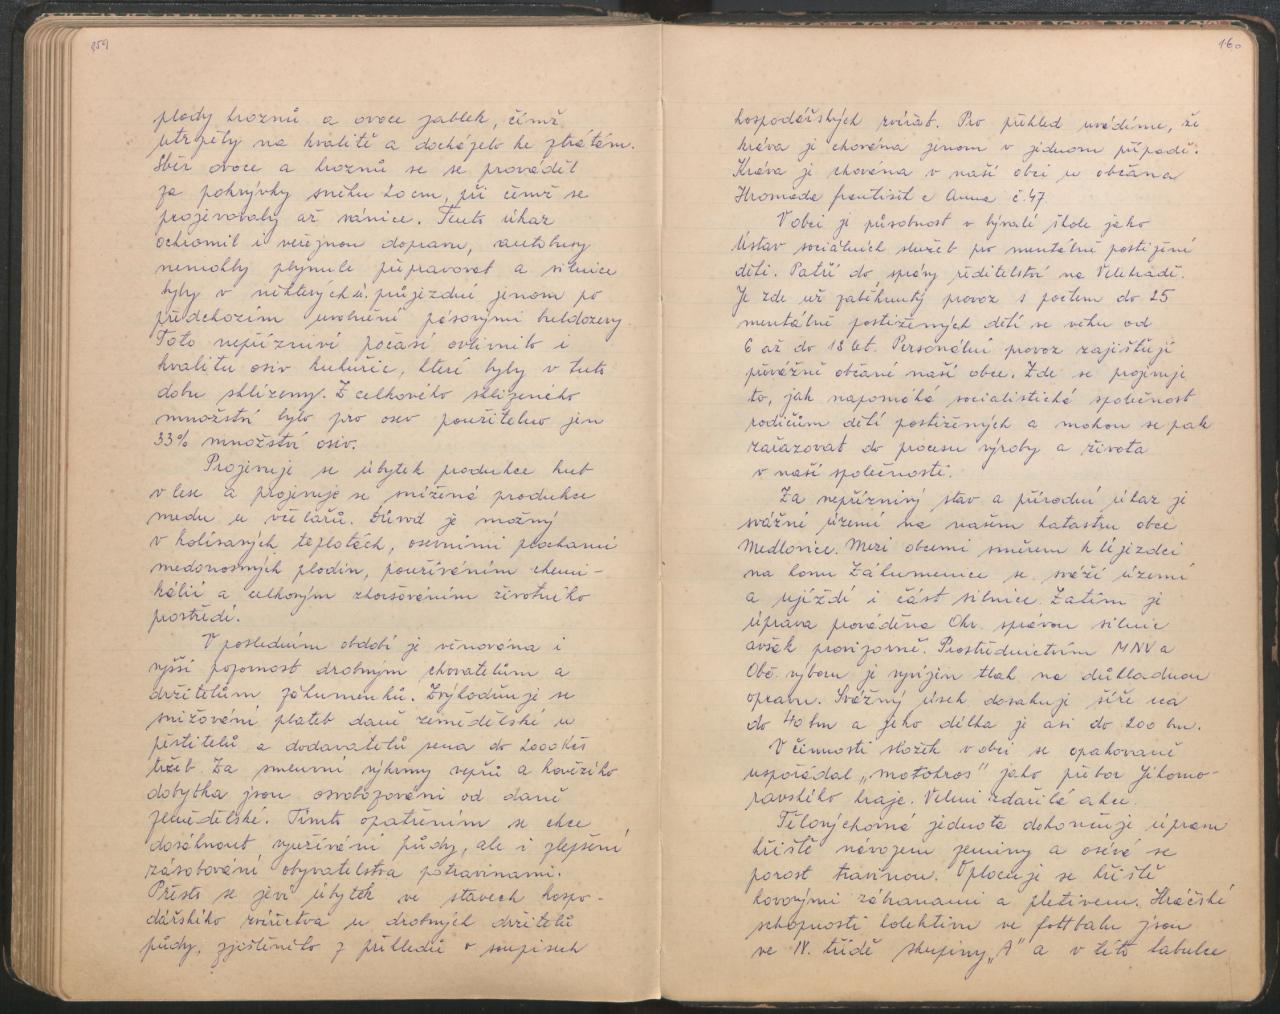 159
plody hroznů a ovoce jablek, čímž
utrpěly na kvalitě a docházelo ke ztrátám.
Sběr ovoce a hroznů se se prováděl
za pokrývky sněhu 20 cm, při čímž se
projevovaly až vánice. Tento úkaz
ochromil i veřejnou dopravu, autobusy
nemohly plynule přepravovat a silnice
byly v některých ú. průjezdné jenom po
předchozím uvolnění pásovými buldozery.
Toto nepříznivé počasí ovlivnilo i
kvalitu osiv kukuřice, které byly v tuto
dobu sklizeny. Z celkového sklizeného
množství bylo pro osev použitelno jen
33% množství osiv.
Projevuje se úbytek produkce hub
v lese a projevuje se snížená produkce
medu u včelařů. Důvod je možný
v kolísavých teplotách, osevními plochami
medonosných plodin, používáním chemi-
kálií a celkovým zhoršováním životního
prostředí.
V posledním období je věnována i
vyšší pozornost drobným chovatelům a
držitelům záhumenků. Zvýhodňuje se
snižování plateb daně zemědělské u
pěstitelů a dodavatelů sena do 2000 Kčs
tržeb. Za smluvní výkrmy vepřů a hovězího
dobytka jsou osvobozováni od daně
zemědělské. Tímto opatřením se chce
dosáhnout využívání půdy, ale i zlepšení
zásobování obyvatelstva potravinami.
Přesto se jeví úbytek ve stavech hospo-
dářského zvířectva u drobných držitelů
půdy, zjištěnilo z přehledů o soupisech
160
hospodářských zvířat. Pro přehled uvádíme, že
kráva je chována jenom v jednom případě.
Kráva je chována v naší obci u občana
Hromada František a Anna č. 47.
V obci je působnost v bývalé škole jako
Ústav sociálních služeb pro mentálně postižené
děti. Patří do správy ředitelství na Velehradě.
Je zde už zaběhnutý provoz s počtem do 25
mentálně postižených dětí se věku od
6 až do 18 let. Personální provoz zajišťují
převážně občané naší obce. Zde se projevuje
to, jak napomáhá socialistická společnost
rodičům dětí postižených a mohou se pak
zařazovat do procesu výroby a života
v naší společnosti.
Za nepříznivý stav a přírodní úkaz je
svážné území na našem katastru obce
Medlovice. Mezi obcemi směrem k Újezdci
na honu Záhumenice se sváží území
a ujíždí i část silnice. Zatím je
úprava prováděna Okr. správou silnic
avšak provizorně. Prostřednictvím MNV a
Obč. výboru je vyvíjen tlak na důkladnou
opravu. Svážný úsek dosahuje šíře cca
do 40 bm a jeho délka je asi do 200 bm.
V činnosti složek v obci se opakovaně
uspořádal „motokros" jako přebor Jihomo-
ravského kraje. Velmi zdařilá akce.
Tělovýchovná jednota dokončuje úpravu
hřiště návozem zeminy a osévá se
porost travinou. Oplocuje se hřiště
kovovými zábranami a pletivem. Hráčské
schopnosti kolektivu ve fotbalu jsou
ve IV. třídě skupiny „A" a v této tabulce